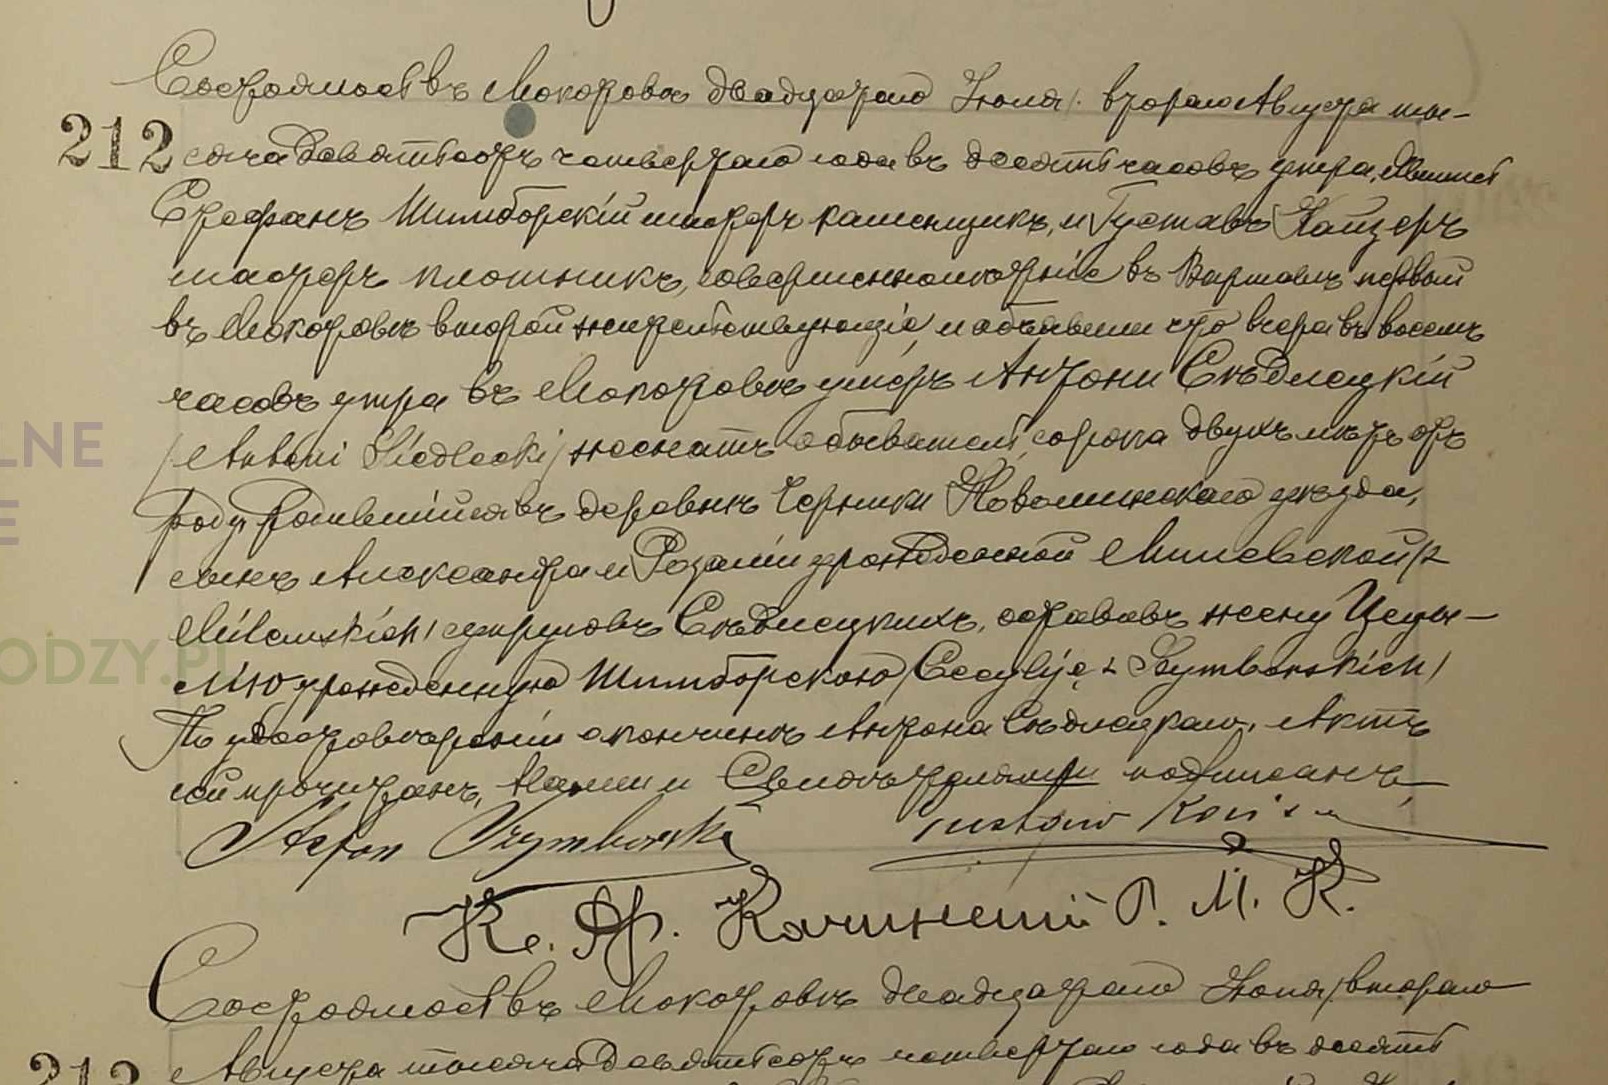 Состоялось въ Мокотовѣ двадцатаго Іюля / втораго Августа ты-
212 сяча девятьсотъ четвертаго года въ десять часовъ утра. Явились
Стефанъ Шимборскій мастеръ каменщикъ, и Густавъ Кайзеръ
мастеръ плотникъ, совершеннолѣтніе въ Варшавѣ первый
въ Мокотовѣ второй жительствующіе, и объявили что вчера въ восемь
часовъ утра въ Мокотовѣ умеръ Антони Сѣдлецкій
/Antoni Siedlecki/ женатъ обыватель, сорока двухъ лѣтъ отъ
роду, родившійся въ деревнѣ Черники Новоминскаго уѣзда,
сынъ Александра и Розаліи урожденной Милевской /z
Milewskich/ супруговъ Сѣдлецкихъ, оставивъ жену Цецы-
лію урожденную Шимборскою /Cecylję z Szymborskich/
По удостовѣреніи о кончинѣ Антона Сѣдлецкаго, Актъ
сей прочитанъ, Нами и Свидѣтелями подписанъ
Stefan Szymborski Gustaw
Кс. Качинскій П. М. К.
Состоялось въ Мокотовѣ двадцатаго Іюля / втораго
213 Августа тысяча девятьсотъ четвертаго года въ десять